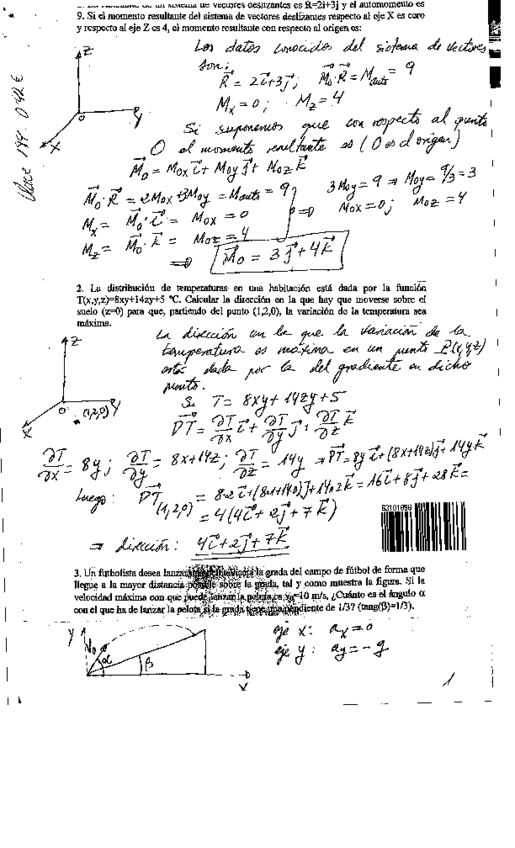 de un sistema de vectores deslizantes es R=2i+3j y el automomento es
9. Si el momento resultante del sistema de vectores deslizantes respecto al eje X es cero
y respecto al eje Z es 4, el momento resultante con respecto al origen es:
Los datos conocidos del sistema de vectores
son: R⃗ = 2i⃗+3j⃗; M⃗₀·R⃗ = Mauto = 9
Mx = 0; Mz = 4
Z
Y
X
Si suponemos que con respecto al punto
O el momento resultante es (O es el origen)
M⃗o = Mox i⃗ + Moy j⃗ + Moz k⃗
M⃗o·R⃗ = 2Mox+3Moy = Mauto = 9
3Moy = 9 ⇒ Moy = 9/3 = 3
Mx = M⃗o·i⃗ = Mox = 0
Mox = 0; Moz = 4
Mz = M⃗o·k⃗ = Moz = 4
⇒ M⃗o = 3j⃗+4k⃗
2. La distribución de temperaturas en una habitación está dada por la función
T(x,y,z)=8xy+14zy+5 ºC. Calcular la dirección en la que hay que moverse sobre el
suelo (z=0) para que, partiendo del punto (1,2,0), la variación de la temperatura sea
máxima.
La dirección en la que la variación de la
temperatura es máxima en un punto P(x,y,z)
está dada por la del gradiente en dicho
punto.
Z
O
(1,2,0)
Y
X
Si T = 8xy + 14zy + 5
∇⃗T = ∂T/∂x i⃗ + ∂T/∂y j⃗ + ∂T/∂z k⃗
∂T/∂x = 8y; ∂T/∂y = 8x+14z; ∂T/∂z = 14y ⇒ ∇⃗T = 8y i⃗+(8x+14z)j⃗+14y k⃗
Luego: ∇⃗T(1,2,0) = 8·2 i⃗+(8·1+14·0)j⃗+14·2 k⃗ = 16i⃗+8j⃗+28k⃗ =
= 4(4i⃗+2j⃗+7k⃗)
⇒ dirección: 4i⃗+2j⃗+7k⃗
63101096
3. Un futbolista desea lanzar la grada del campo de fútbol de forma que
llegue a la mayor distancia posible sobre la grada, tal y como muestra la figura. Si la
velocidad máxima con que puede lanzar la pelota es v₀=10 m/s, ¿Cuánto es el ángulo α
con el que ha de lanzar la pelota si la grada tiene una pendiente de 1/3? (tang(β)=1/3).
Y
α
β
X
eje x: ax = 0
eje y: ay = -g
1